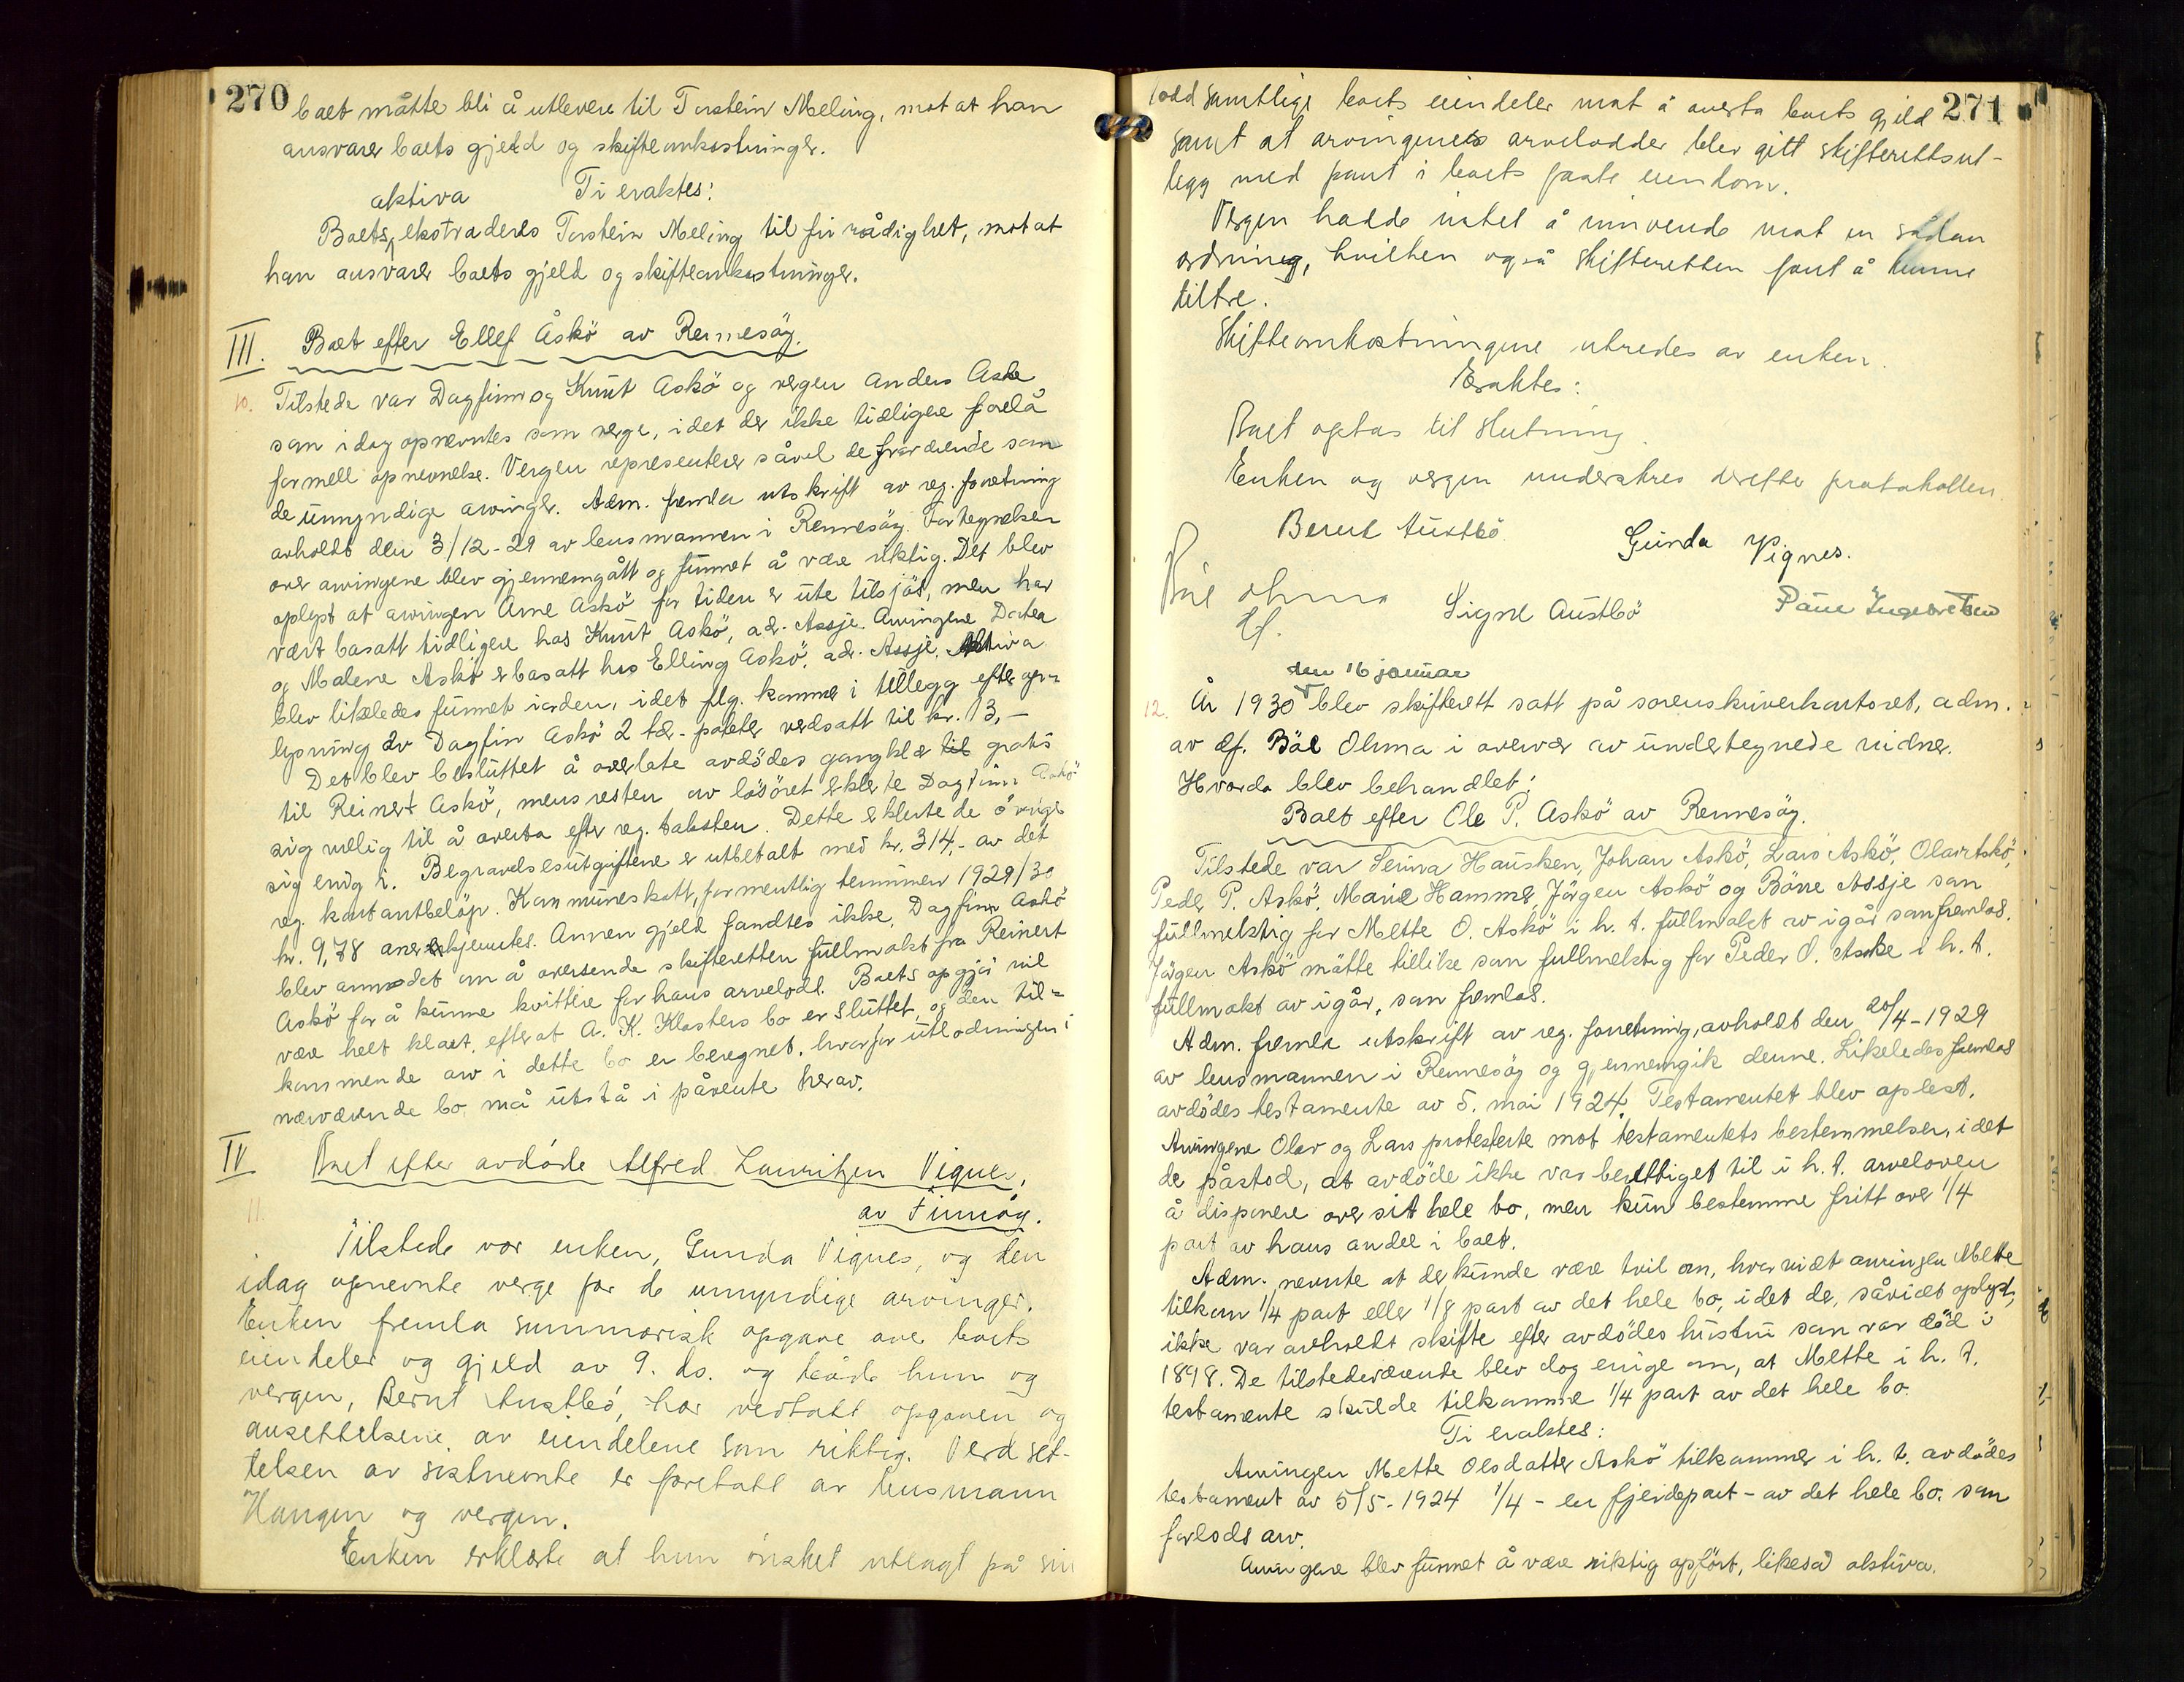 270
boet måtte bli å utlevere til Torstein Meling, mot at han
ansvarer boets gjeld og skifteomkostninger.
Ti eraktes:
aktiva
Boets ekstraderes Torstein Meling til fri rådighet, mot at
han ansvarer boets gjeld og skifteomkostninger.
III. Boet efter Ellef Askö av Rennesöy.
10. Tilstede var Dagfinn og Knut Askö og vergen Anders Aske
som idag opnevntes som verge, idet der ikke tidligere forelå
formell opnevnelse. Vergen representerer såvel de fraværende som
de umyndige arvinger. Adm. fremla utskrift av reg. forretning
avholdt den 3/12-29 av lensmannen i Rennesöy. Fortegnelsen
over arvingene blev gjennemgått og funnet å være riktig. Det blev
oplyst at arvingen Arne Askö for tiden er ute tilsjös, men har
vært bosatt tidligere hos Knut Askö, adr. Assje. Arvingene Dortea
og Malene Askö er bosatt hos Elling Askö, adr. Assje. Aktiva
blev likeledes funnet iorden, idet flg. kommer i tillegg efter op-
lysning av Dagfin Askö 2 tdr. poteter verdsatt til kr. 13,-
Det blev besluttet å overlate avdödes gangklær til gratis
til Reinert Askö, mens resten av lösöret erklærte Dagfinn Askö
sig villig til å overta efter reg. taksten. Dette erklærte de övrige
sig enig i. Begravelsesutgiftene er utbetalt med kr. 314,- av det
reg. kontantbelöp. Kommuneskatt, formentlig terminen 1929/30
kr. 9,78 anerkjentes. Annen gjeld fandtes ikke. Dagfinn Askö
blev anmodet om å oversende skifteretten fullmakt fra Reinert
Askö for å kunne kvittere for hans arvelodd. Boets opgjör vil
være helt klart, efterat A. K. Klosters bo er sluttet, og den til-
kommende arv i dette bo er beregnet, hvorfor utlodningen i
nærværende bo må utstå i påvente herav.
IV Boet efter avdöde Alfred Lauritzen Vignes,
av Finnöy.
11.
Tilstede var enken, Gunda Vignes, og den
idag opnevnte verge for de umyndige arvinger.
Enken fremla summarisk opgave over boets
eiendeler og gjeld av 9. ds. og både hun og
vergen, Bernt Austbö, har vedtatt opgaven og
ansettelsene av eiendelene som riktig. Verdset-
telsen av sistnevnte er foretatt av lensmann
Haugen og vergen.
Enken erklærte at hun önsket utlagt på sin
271
lodd samtlige boets eiendeler mot å overta boets gjeld
samt at arvingenes arvelodder blev gitt skifterettsut-
legg med pant i boets faste eiendom.
Vergen hadde intet å innvende mot en sådan
ordning, hvilken også skifteretten fant å kunne
tiltre.
Skifteomkostningene utredes av enken.
Eraktes:
Boet optas til slutning.
Enken og vergen underskrev derefter protokollen.
Bernt Austbö
Gunda Vignes.
Bål Ohma
Ef.
Signe Austbö
den 16 januar
12. År 1930 blev skifterett satt på sorenskriverkontoret, adm.
av ef. Bål Ohma i overvær av undertegnede vidner.
Hvorda blev behandlet:
Boet efter Ole P. Askö av Rennesöy.
Tilstede var Serina Hausken, Johan Askö, Lars Askö, Olav Askö,
Peder P. Askö, Marie Hammer, Jörgen Askö og Börre Assje som
fullmektig for Mette O. Askö i h. t. fullmakt av igår som fremlas.
Jörgen Askö mötte tillike som fullmektig for Peder O. Aske i h. t.
fullmakt av igår, som fremlas.
Adm. fremla utskrift av reg. forretning, avholdt den 20/4-1929
av lensmannen i Rennesöy og gjennemgik denne. Likeledes fremlas
avdödes testamente av 5. mai 1924. Testamentet blev oplest.
Arvingene Olav og Lars protesterte mot testamentets bestemmelser, idet
de påstod, at avdöde ikke var berettiget til i h. t. arveloven
å disponere over sit hele bo, men kun bestemme fritt over 1/4
part av hans andel i boet.
Adm. nevnte at der kunde være tvil om, hvorvidt arvingen Mette
tilkom 1/4 part eller 1/8 part av det hele bo, idet der, såvidt oplyst,
ikke var avholdt skifte efter avdödes hustru som var död i
1898. De tilstedeværende blev dog enige om, at Mette i h. t.
testamente skulde tilkomme 1/4 part av det hele bo.
Ti eraktes:
Arvingen Mette Olsdatter Askö tilkommer i h. t. avdödes
testament av 5/5-1924 1/4 - en fjerdepart - av det hele bo som
forlods arv.
Arvingene blev funnet å være riktig opfört, likeså aktiva.